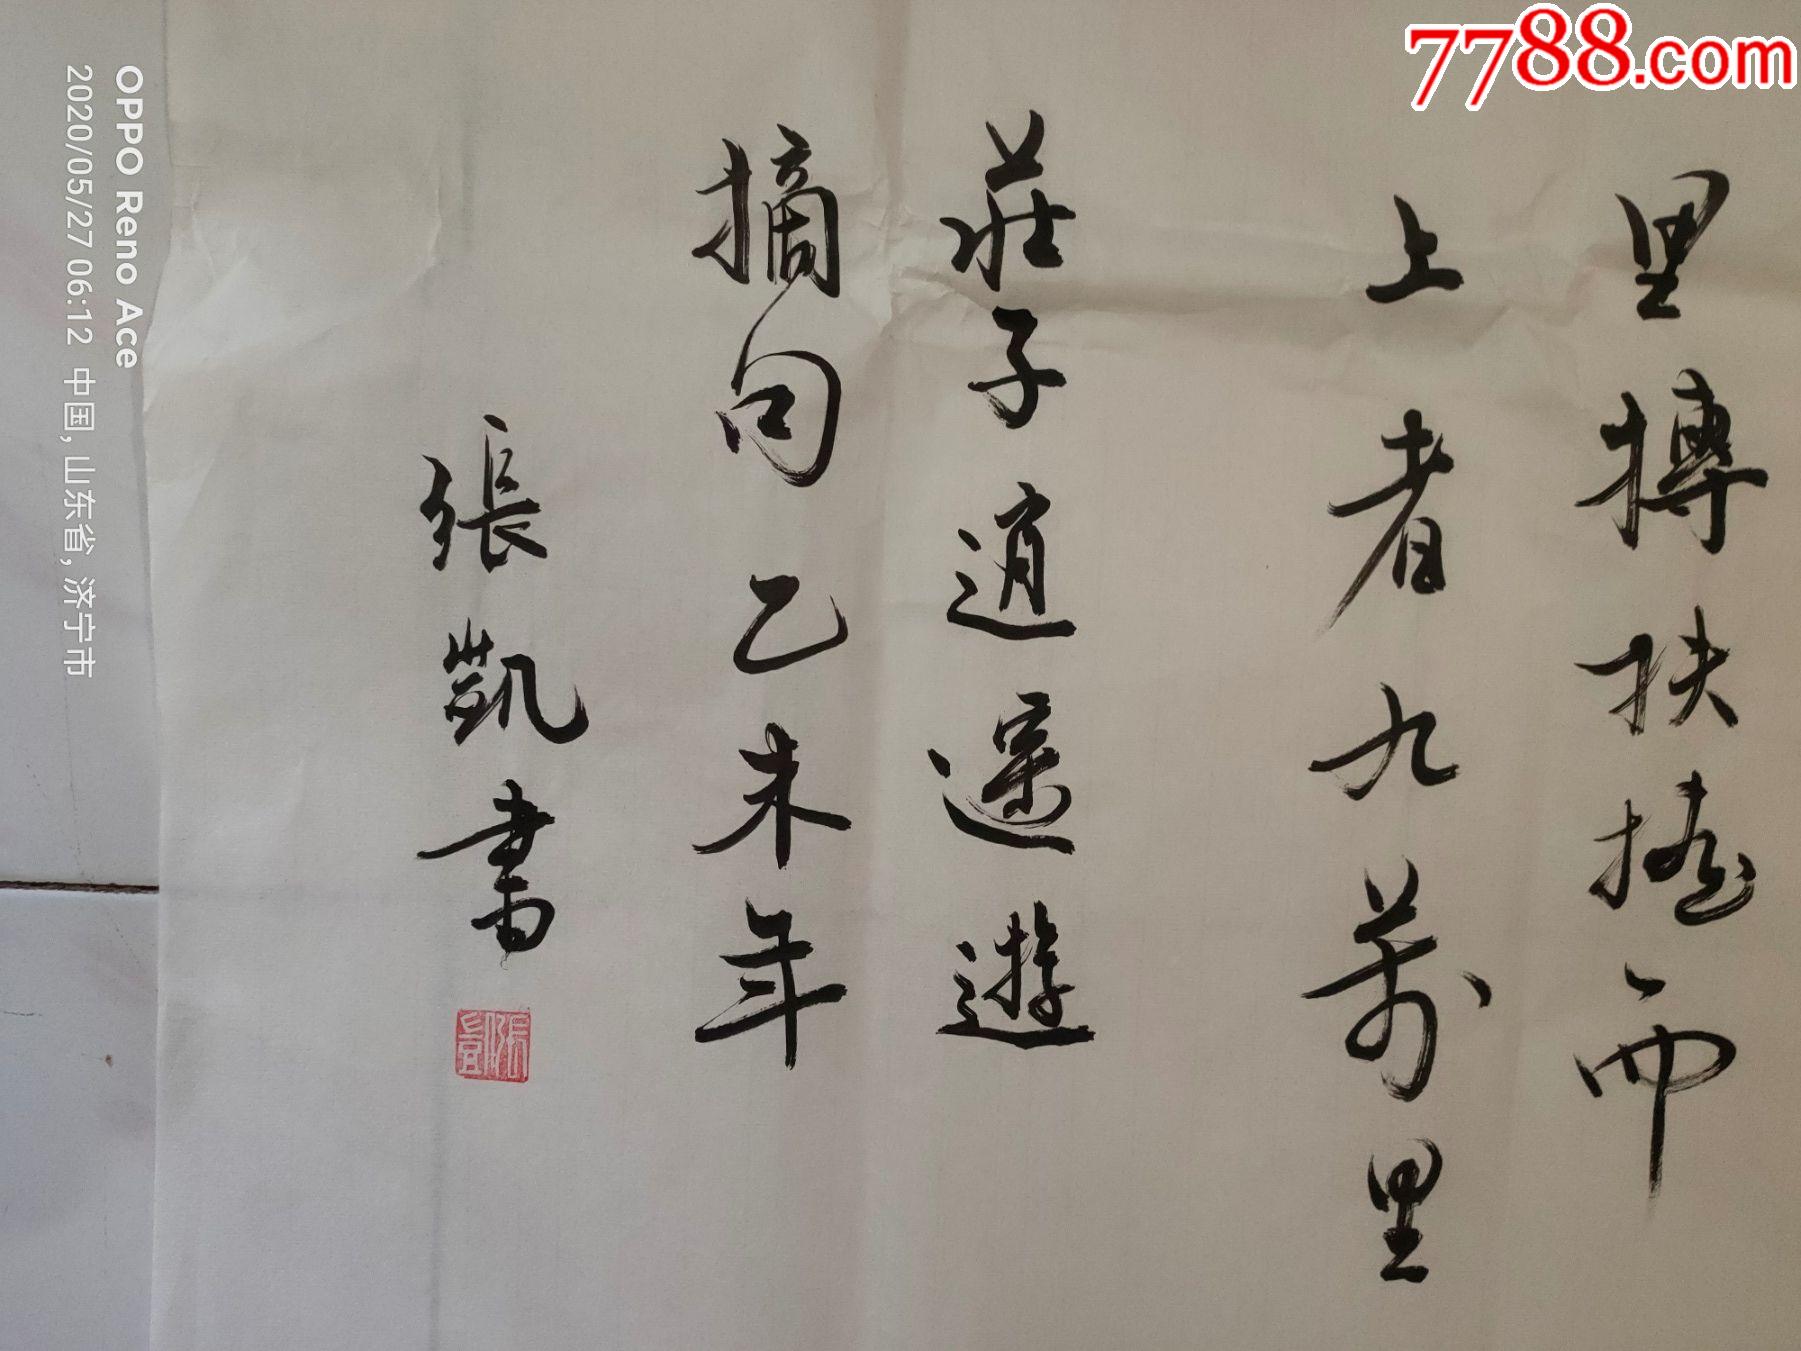 里摶扶摇而
上者九萬里
莊子逍遥遊
摘句乙未年
張凱書
張凱
7788.com
OPPO Reno Ace
2020/05/27 06:12 中国, 山东省, 济宁市